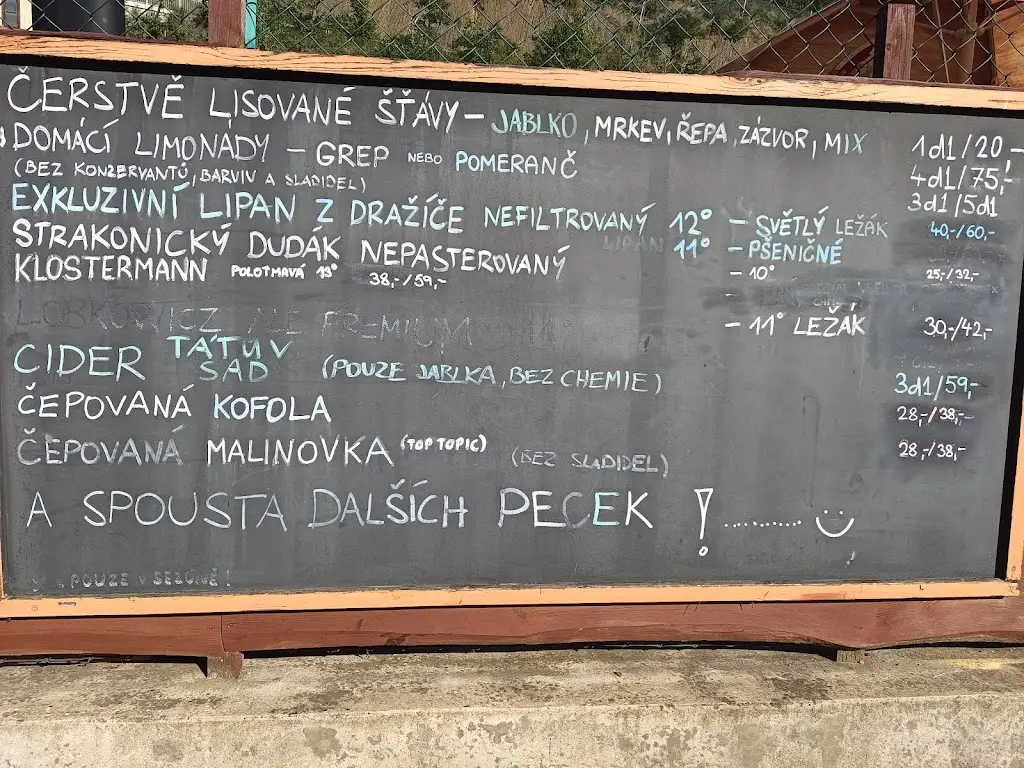 ČERSTVĚ LISOVANÉ ŠŤÁVY – JABLKO, MRKEV, ŘEPA, ZÁZVOR, MIX 1dl/20,-
DOMÁCÍ LIMONÁDY – GREP NEBO POMERANČ 4dl/75,-
(BEZ KONZERVANTŮ, BARVIV A SLADIDEL) 3dl/5dl
EXKLUZIVNÍ LIPAN Z DRAŽÍČE NEFILTROVANÝ 12° – SVĚTLÝ LEŽÁK 40,-/60,-
LIPAN 11° – PŠENIČNÉ
STRAKONICKÝ DUDÁK NEPASTEROVANÝ – 10° 25,-/32,-
KLOSTERMANN POLOTMAVÁ 13° 38,-/59,-
LOBKOWICZ ALE PREMIUM – 11° LEŽÁK 30,-/42,-
CIDER TÁTŮV SAD (POUZE JABLKA, BEZ CHEMIE) 3dl/59,-
ČEPOVANÁ KOFOLA 28,-/38,-
ČEPOVANÁ MALINOVKA (TOP TOPIC) (BEZ SLADIDEL) 28,-/38,-
A SPOUSTA DALŠÍCH PECEK !..........
POUZE V SEZONĚ!